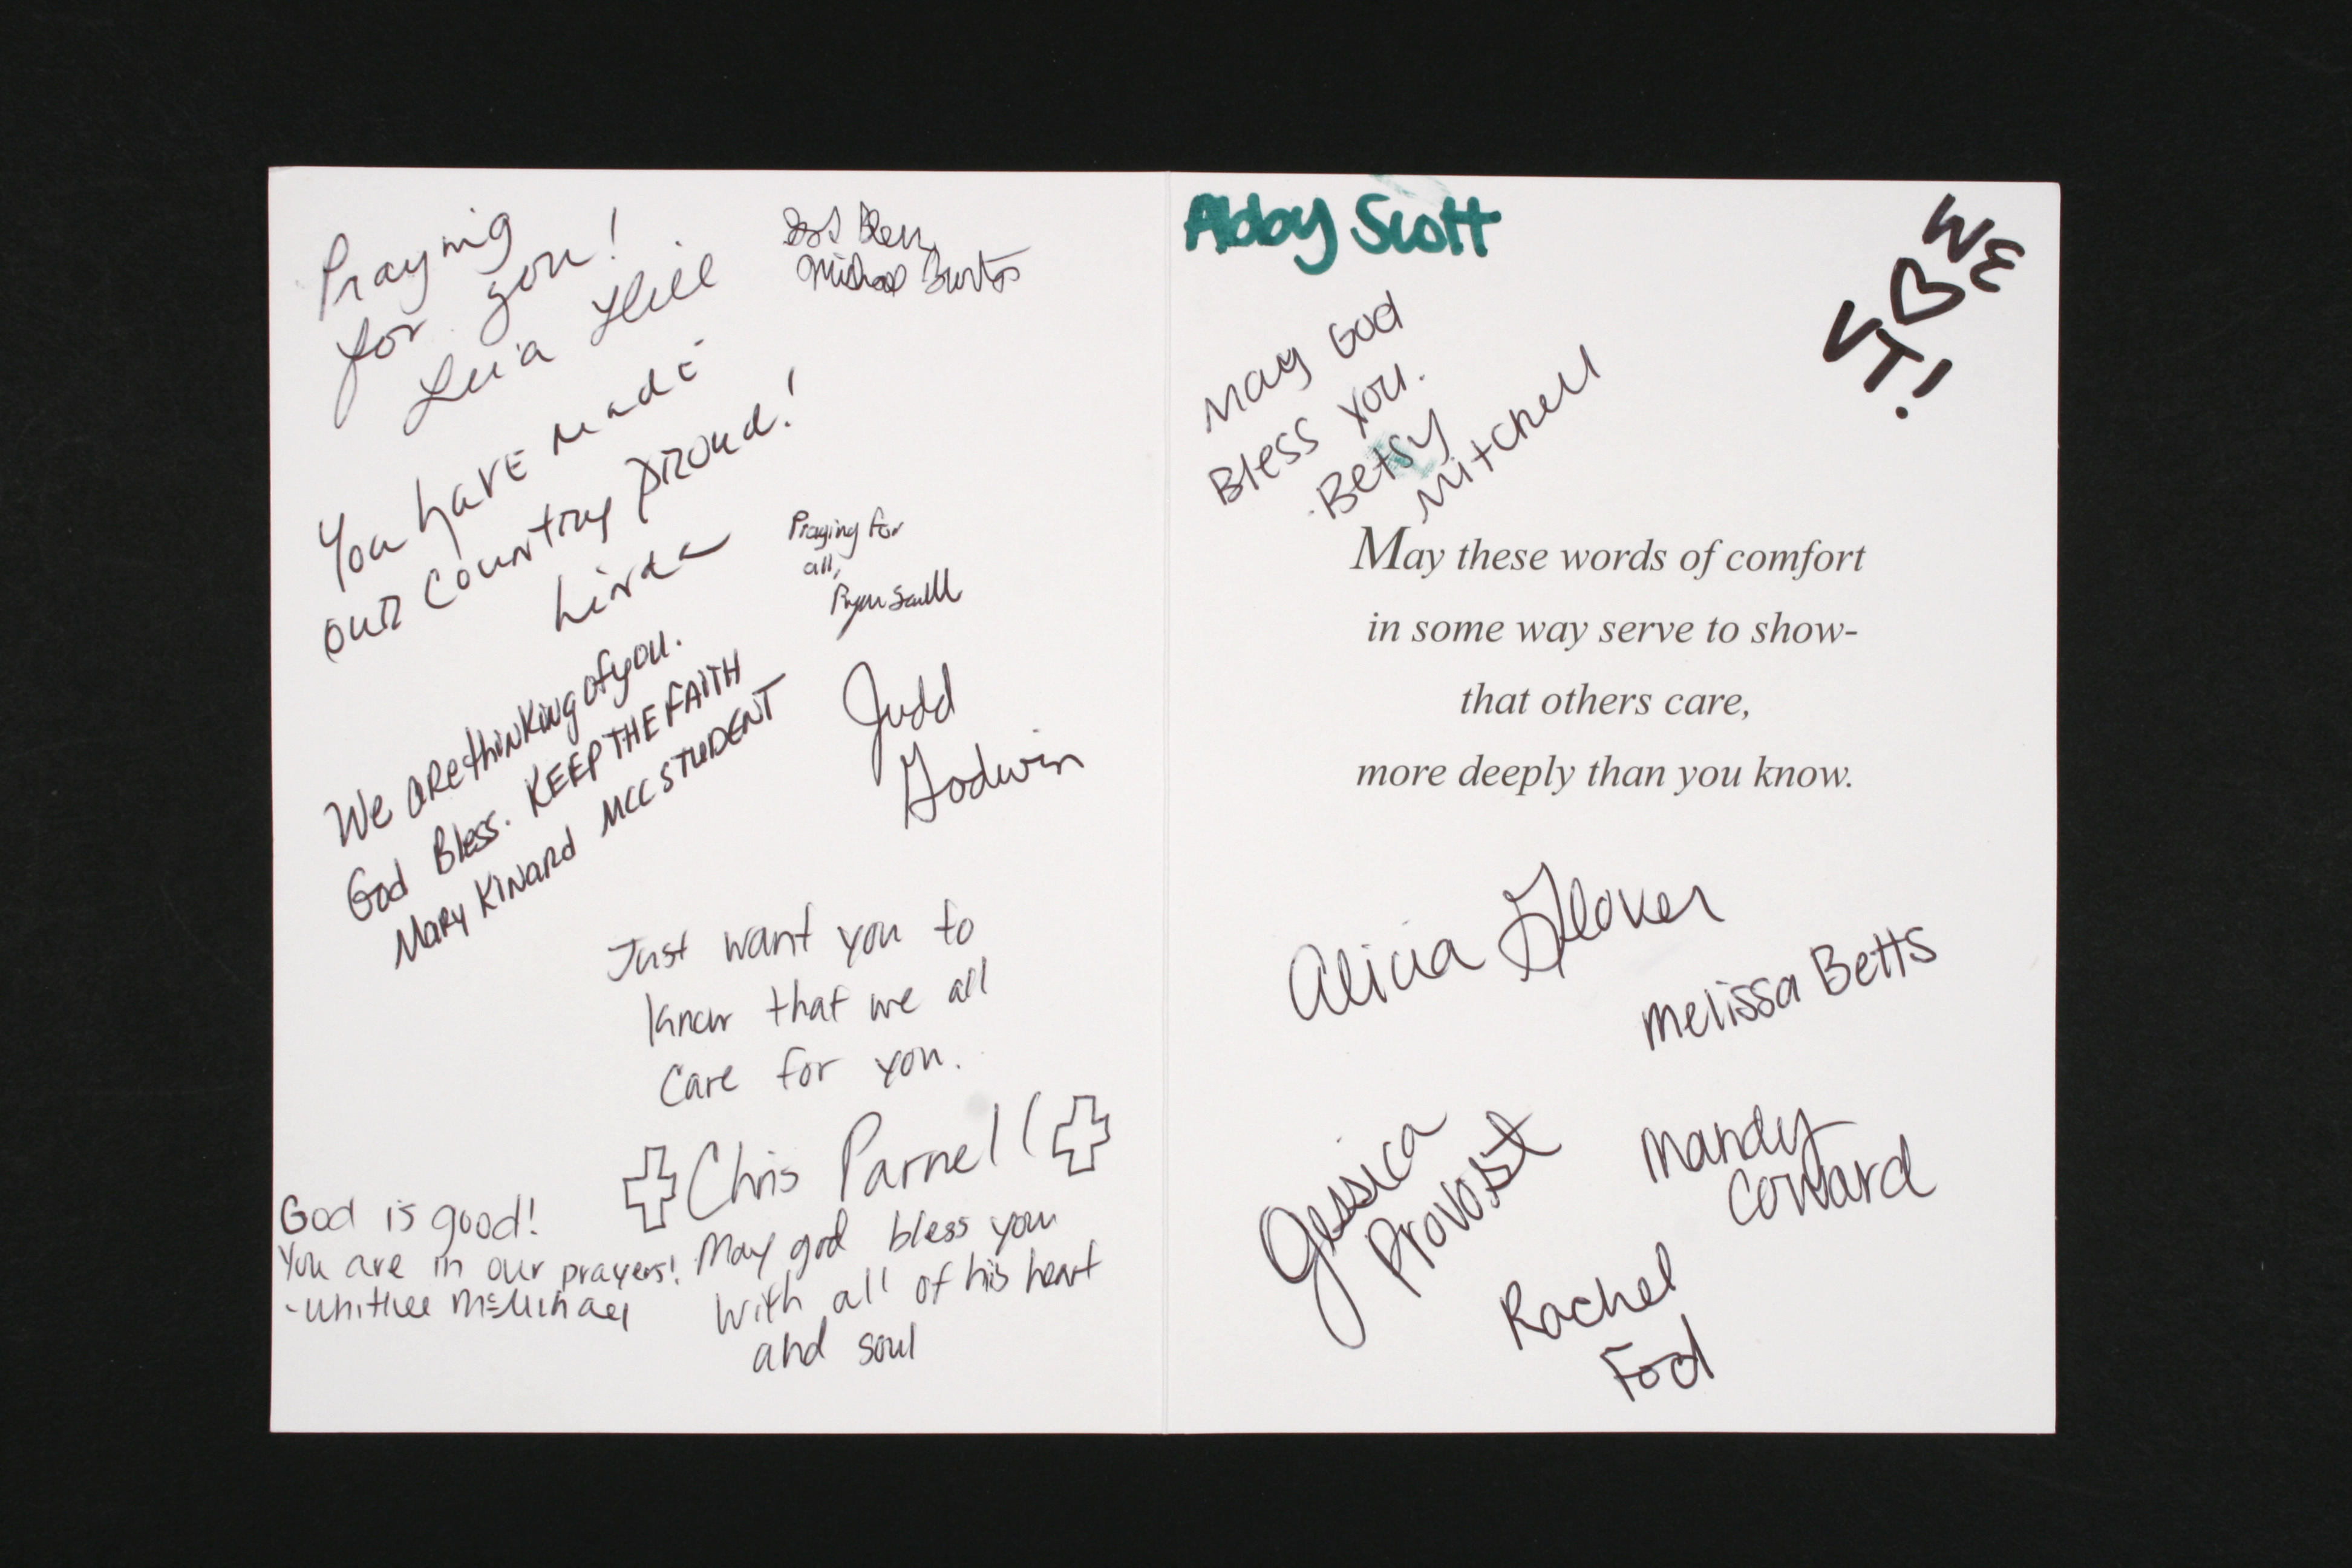 Praying
for you!
Hill
God Bless
Michael Burton
You have made
our Country proud!
Linda
Praying for
all,
Ryan
We are thinking of you.
God Bless. KEEP THE FAITH
Mary Kinard MCC STUDENT
Judd
Godwin
Just want you to
know that we all
Care for you.
Chris Parnell
May god bless you
with all of his heart
and soul
God is good!
You are in our prayers!
- McMichael
Abby Scott
WE
♡
VT!
May God
Bless you.
Betsy
Mitchell
May these words of comfort
in some way serve to show-
that others care,
more deeply than you know.
Alicia Glover
Melissa Betts
Jessica
Provost
Mandy
Coward
Rachel
Ford